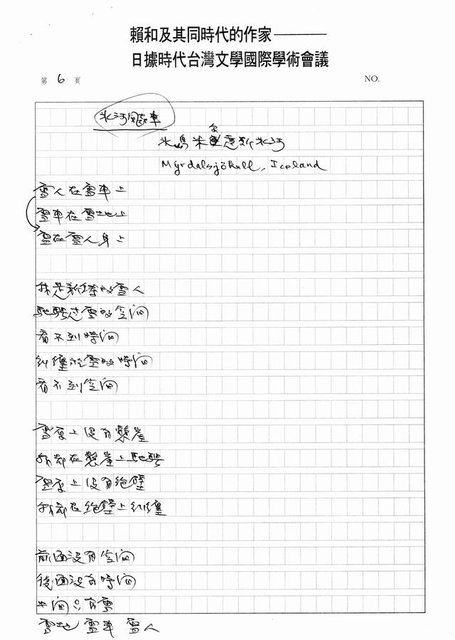 賴和及其同時代的作家———
日據時代台灣文學國際學術會議
第 6 頁
NO.
冰河雪車
冰島米達斯冰河
Myrdalsjökull, Iceland
雪人在雪車上
雪車在雪地上
雪在雪人身上
我是新來的雪人
馳騁是雪的空間
看不到時間
糾纏的是雪的時間
看不到空間
雪車上沒有懸崖
我卻在懸崖上馳騁
雪車上沒有絕壁
我卻在絕壁上糾纏
前面沒有空間
後面沒有時間
中間只有雪
雪地 雪車 雪人